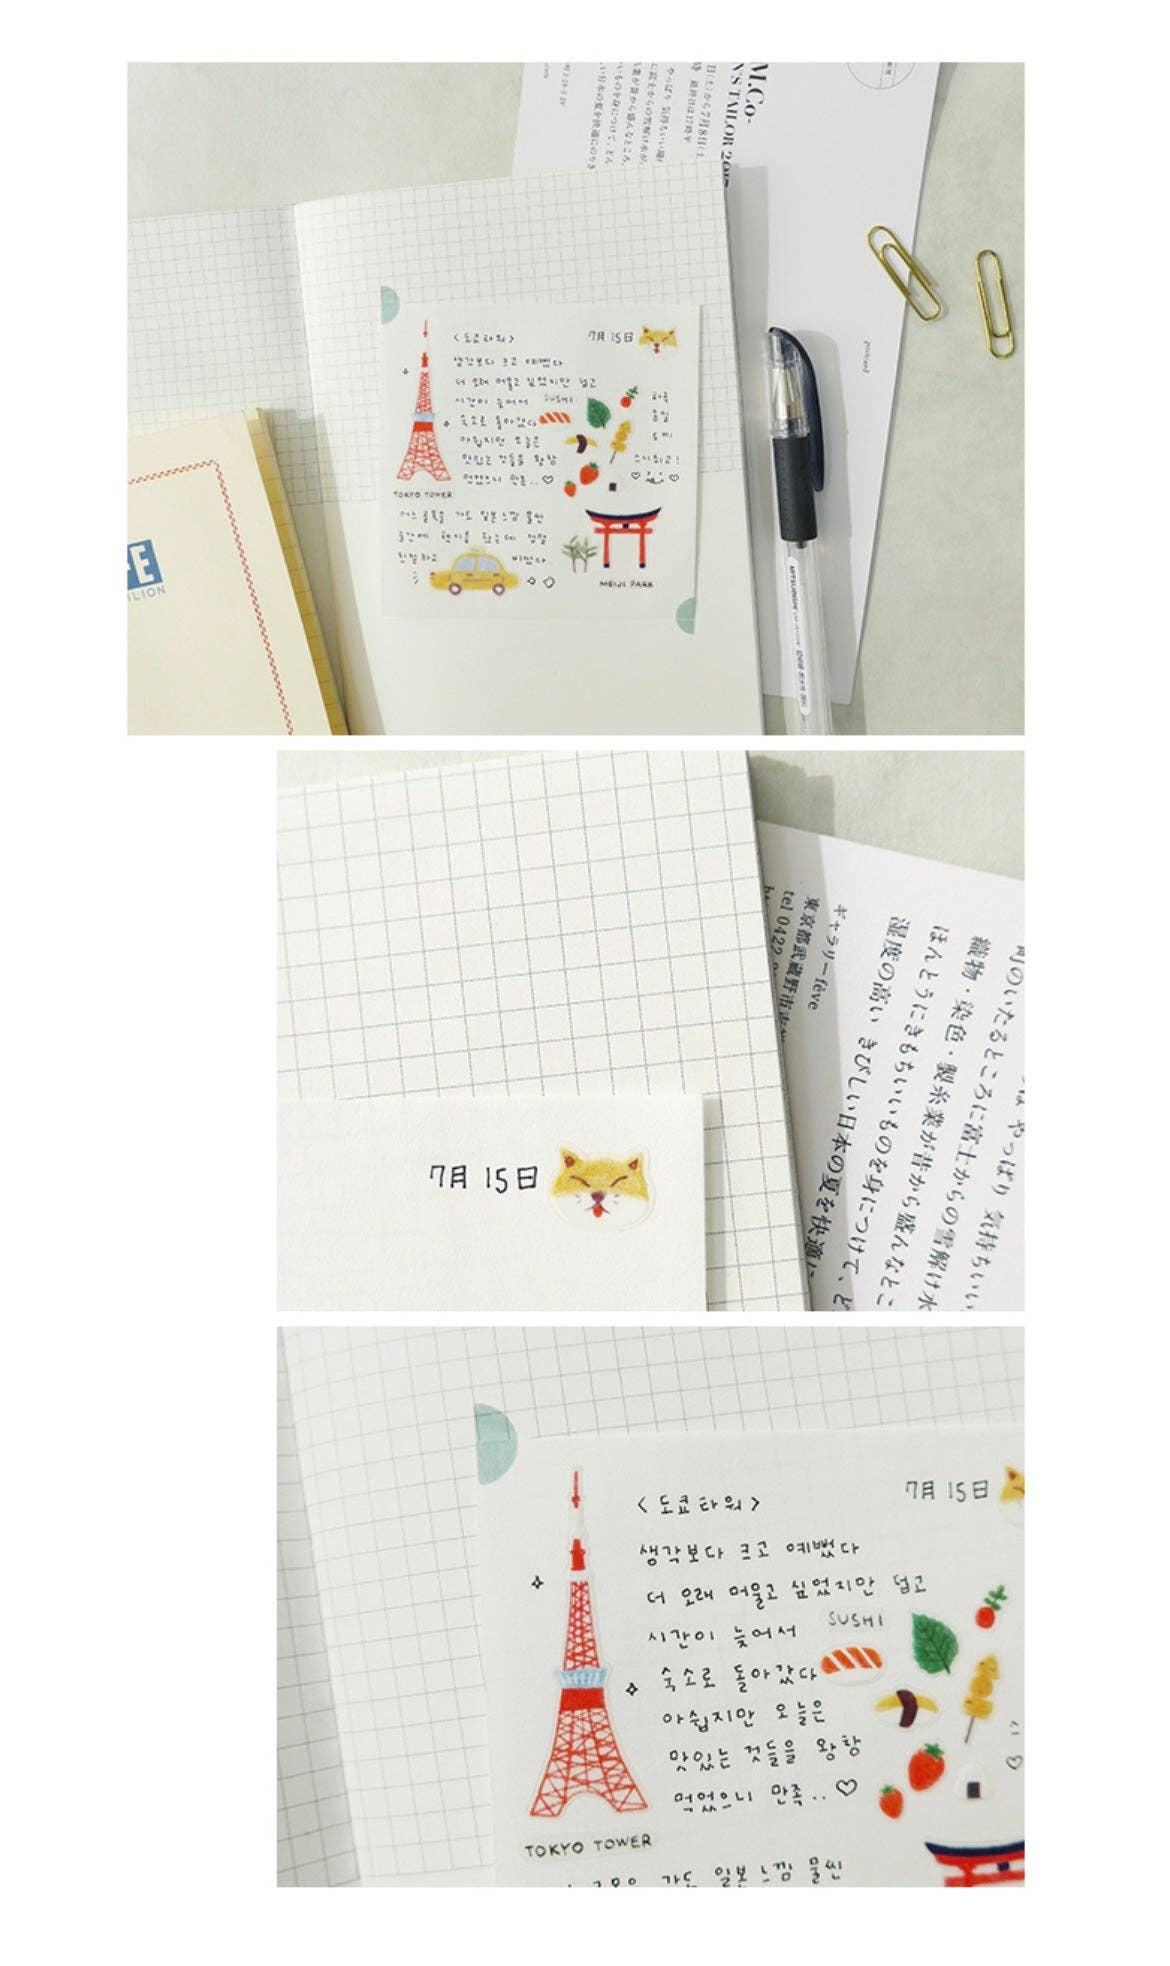 M.Co-
N'S TAILOR 2015
日(土)から7月8日(土
postcard
E
ILION
<도쿄타워>
7月 15日
생각보다 크고 예뻤다
더 오래 머물고 싶었지만 덥고
시간이 늦어서
SUSHI
숙소로 돌아갔다
아쉽지만 오늘은
맛있는 것들을 왕창
먹었으니 만족..♡
하루
종일
스시최고!
TOKYO TOWER
어느 골목을 가도 일본 느낌 물씬
친절하고 비쌌다
MEIJI PARK
7月 15日
町のいたるところに富士からの雪解け水
はやっぱり 気持ちいい
織物・染色・製糸業が昔から盛んなとこ
ほんとうにきもちいいものを身につけて、ど
湿度の高い きびしい日本の夏を快適に
ギャラリーfève
東京都武蔵野市吉
tel 0422
<도쿄타워>
7月 15日
생각보다 크고 예뻤다
더 오래 머물고 싶었지만 덥고
시간이 늦어서
SUSHI
숙소로 돌아갔다
아쉽지만 오늘은
맛있는 것들을 왕창
먹었으니 만족..♡
TOKYO TOWER
가도 일본 느낌 물씬